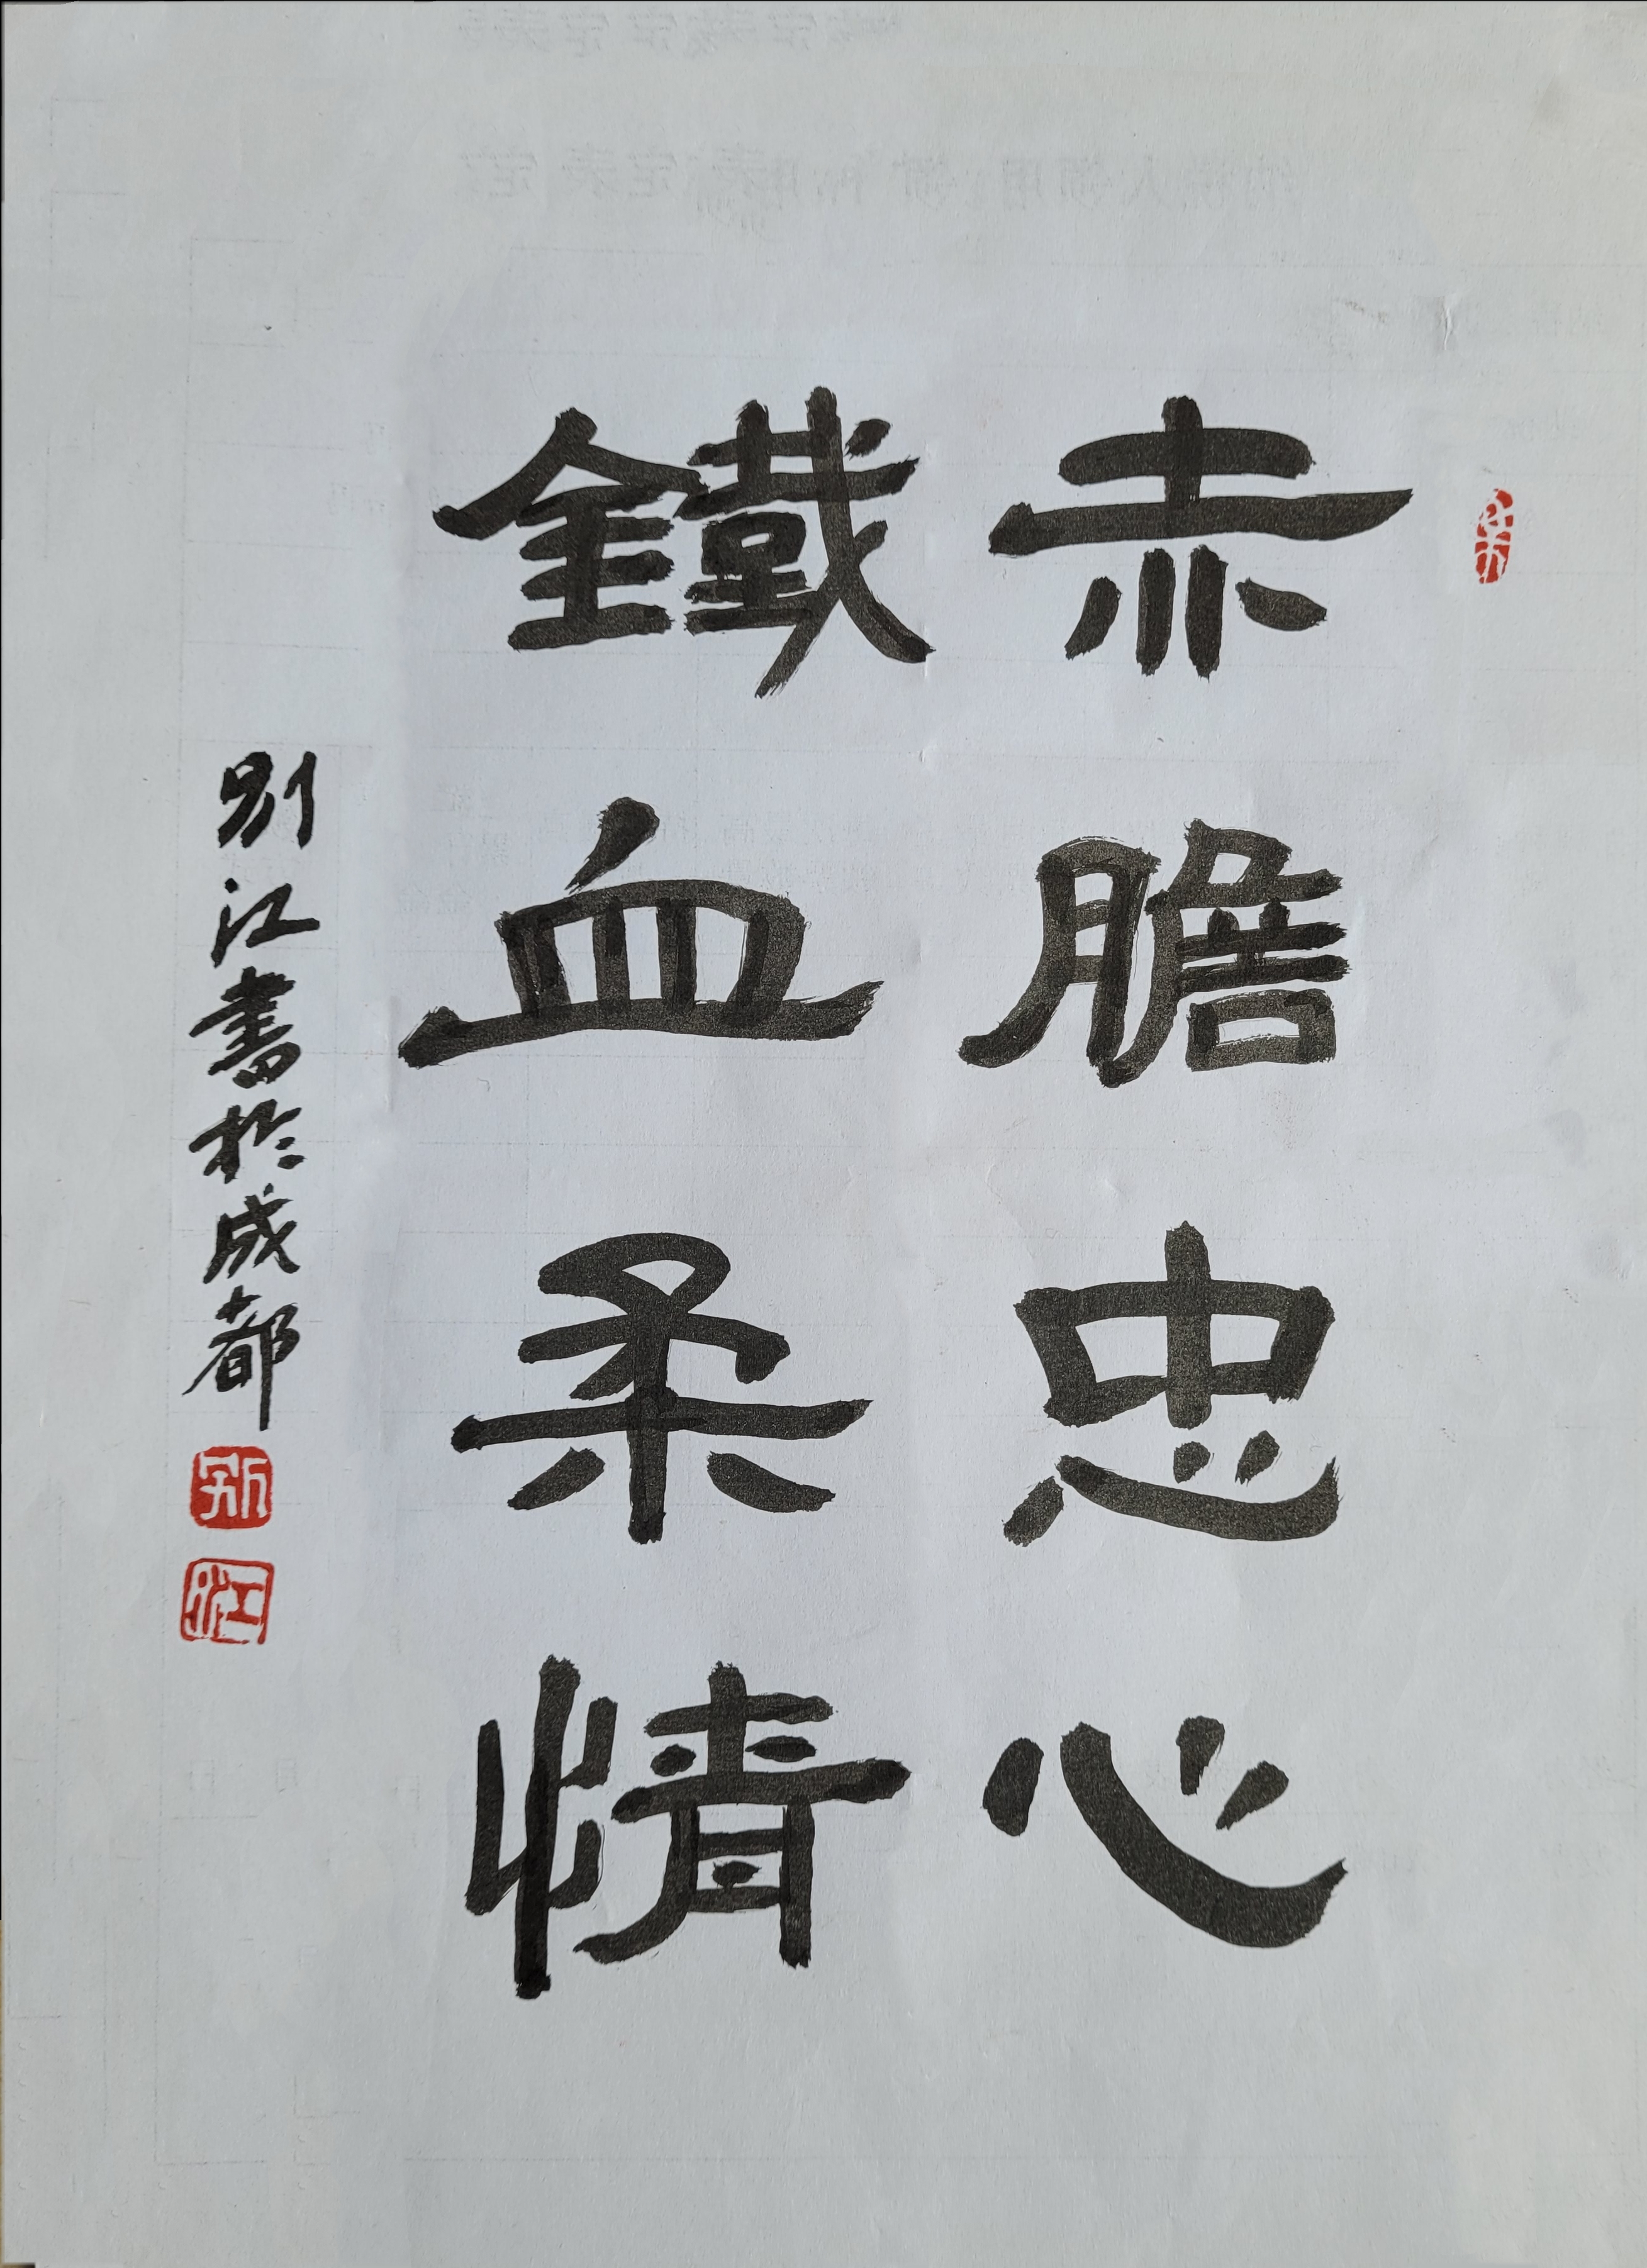 赤膽忠心
鐵血柔情
別江書於成都
别
江